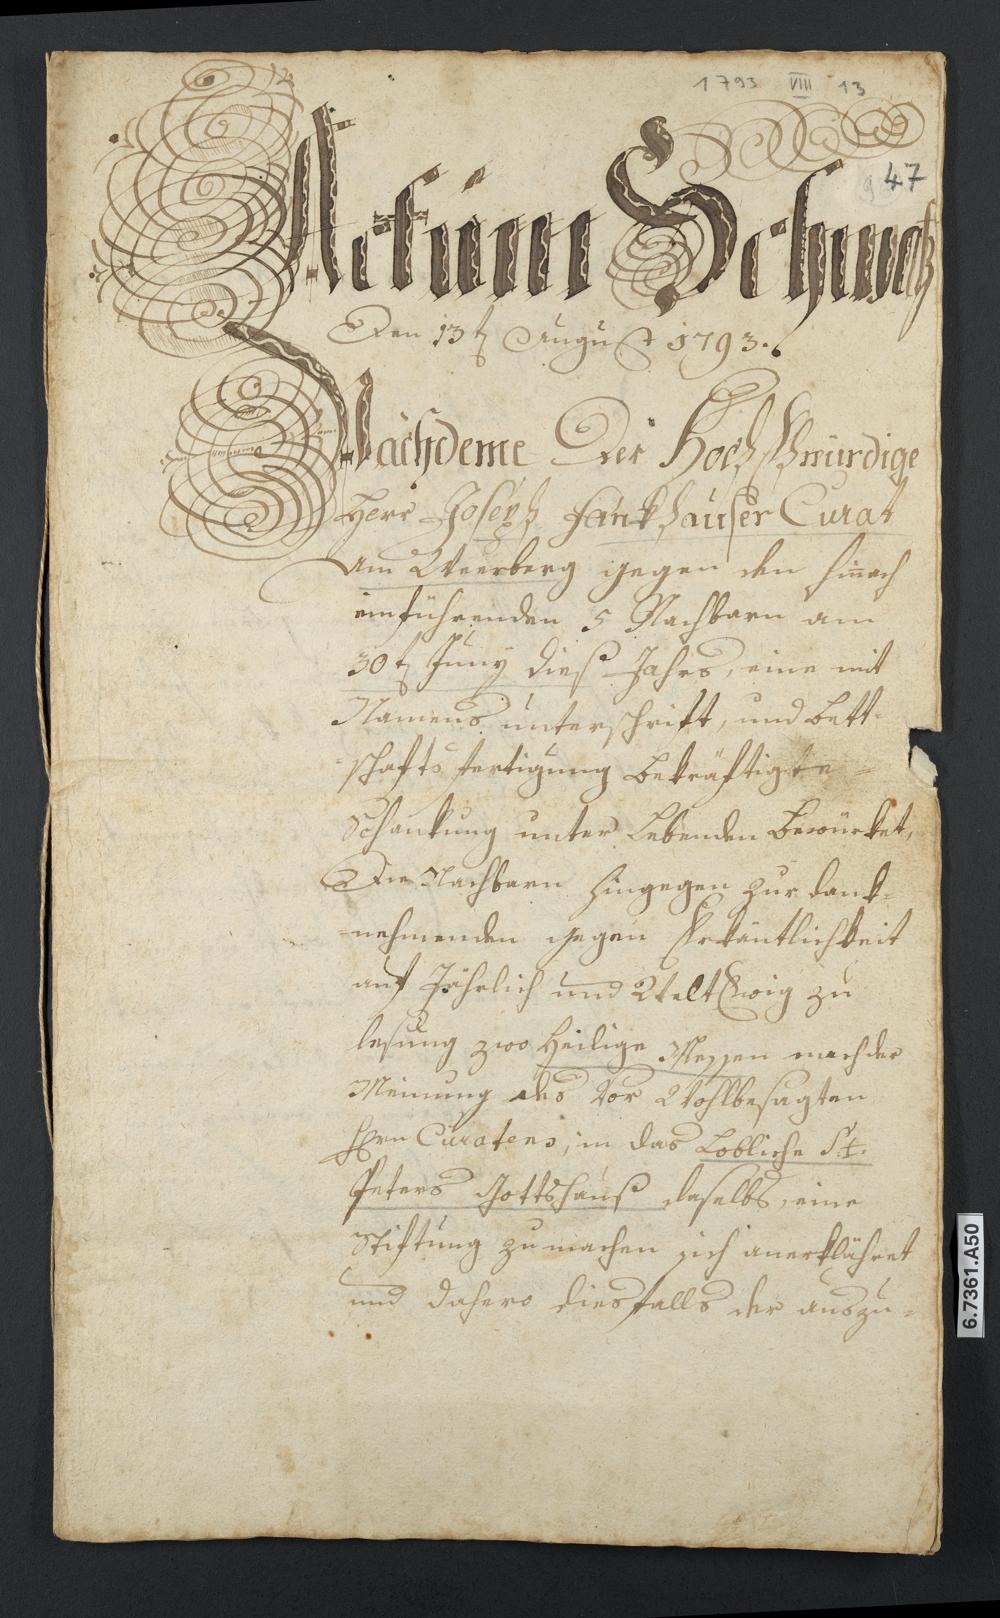 1793 VIII 13
47
Actum Schwatz
Den 13t August 1793.
Nachdeme Der Hochwürdige
Herr Joseph Fankhauser Curat
am Weerberg gegen den hinach
einführenden 5 Nachbarn am
30t Juny dieß Jahrs, eine mit
Namens unterschrift, und Bett-
schafts fertigung bekräftigte
Schankung unter Lebenden bewürket,
Die Nachbarn hingegen zur dank-
nehmenden gegen Erkäntlichkeit
auf Jährlich und Welt Ewig zu
lesung zwo Heilige Messen nach der
Meinung des Vor Wohlbesagten
Hrn Curatens, in das Lobliche St:
Peters Gottshauß daselbs, eine
Stiftung zu machen sich anerklähret
und dahero diesfalls der auszu-
6.7361.A50